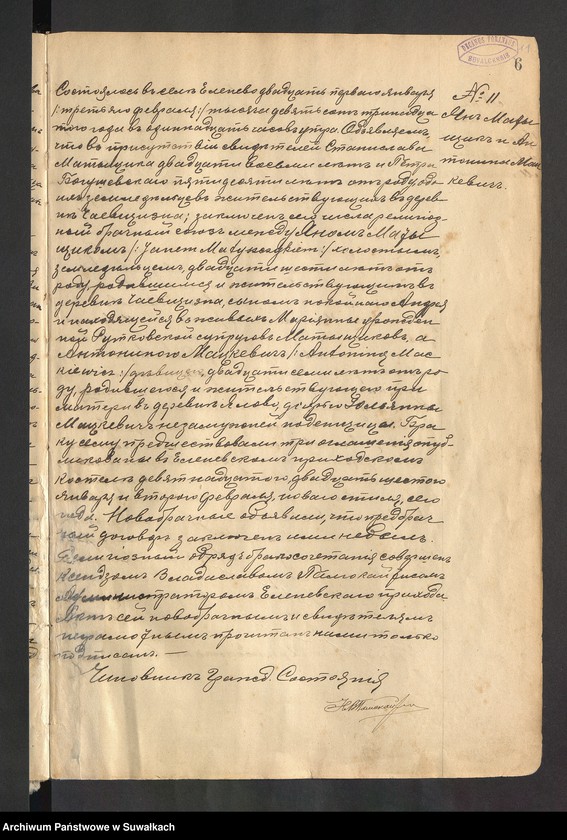 6
№ 11
Янъ Маты
щикъ и Ан
тонина Мац
кевичъ.
Состоялось въ селѣ Еленево двадцать перваго января
/: третьяго февраля :/ тысяча девятьсотъ тринадца
таго года въ одинадцать часовъ утра. Объявляемъ,
что въ присутствіи свидѣтелей Станислава
Матыщика двадцати восьми лѣтъ и Петра
Богушевскаго пятидесяти лѣтъ отъ роду, обо
ихъ земледѣльцевъ жительствующихъ въ дерев
нѣ Чаевщизна; заключенъ сего числа религіоз
ной брачный союзъ между Яномъ Маты
щикомъ /: Janem :/ холостымъ,
земледѣльцемъ, двадцати шести лѣтъ отъ
роду, родившимся и жительствующимъ въ
деревнѣ Чаевщизна, сыномъ покойнаго Андрея
и находящейся въ живыхъ Маріянны урожден
ной Рутковской супруговъ Матыщиковъ, а
Антониною Мацкевичъ /: Antonina Mac
kiewicz :/ дѣвицею, двадцати семи лѣтъ отъ ро
ду, родившеюся и жительствующею при
матери въ деревнѣ Ялово, дочерью
Мацкевичъ незамужней поденщицы. Бра
ку сему предшествовали три оглашенія опуб
ликованы въ Еленевскомъ приходскомъ
костелѣ девятнадцатаго, двадцать шестого
января и второго февраля, новаго стиля, сего
года. Новобрачные объявили, что предбрач
ной договоръ заключенъ ими небылъ.
Религіозный обрядъ бракосочетанія совершенъ
ксендзомъ Владиславомъ
Администраторомъ Еленевскаго прихода
Актъ сей новобрачнымъ и свидѣтелямъ
неграмотнымъ прочитанъ нами только
подписанъ. —
Чиновникъ Гражд. Состоянія
Archiwum Państwowe w Suwałkach